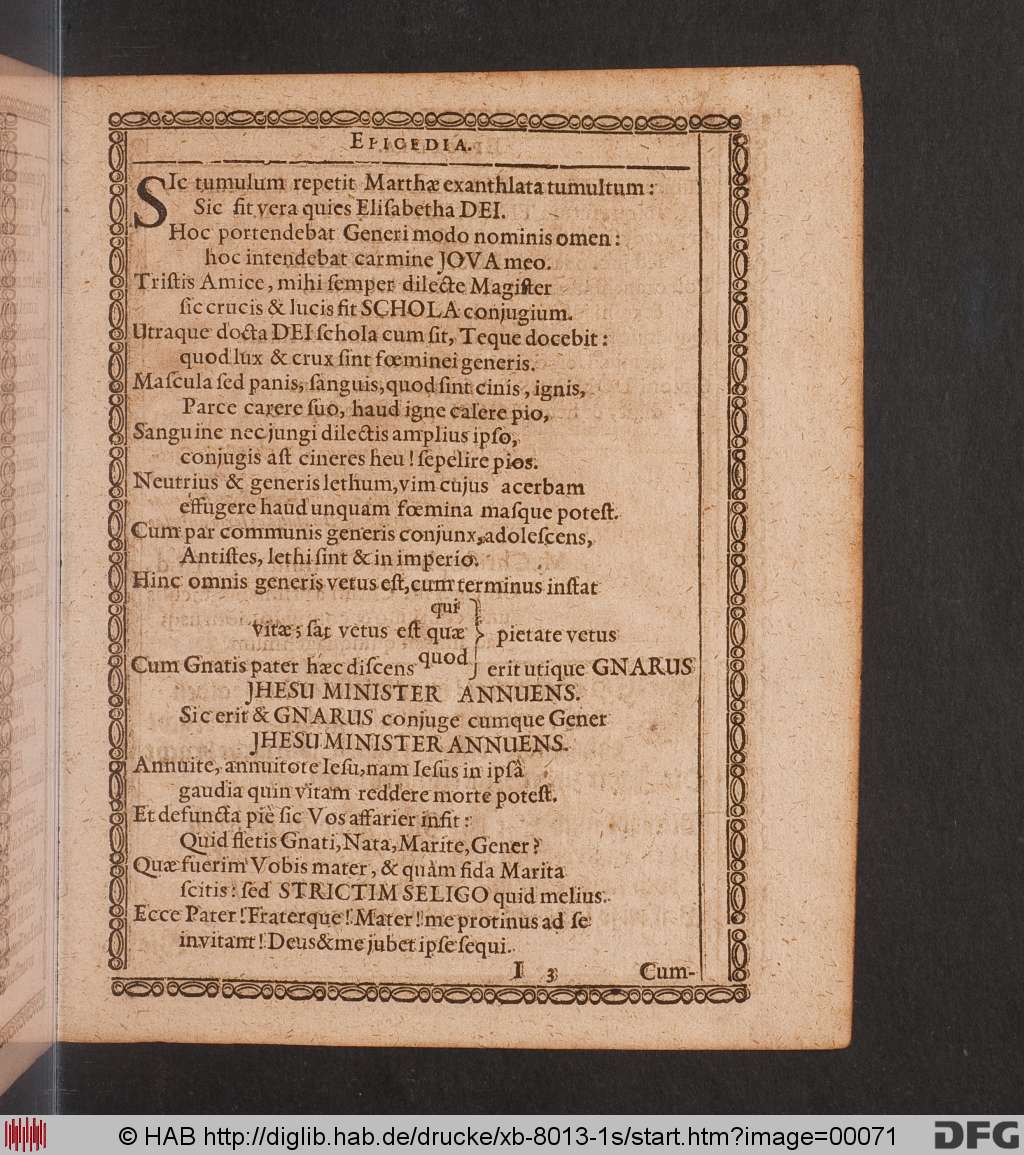 EPICEDIA.
SIc tumulum repetit Marthæ exanthlata tumultum:
Sic ſit vera quies Eliſabetha DEI.
Hoc portendebat Generi modo nominis omen:
hoc intendebat carmine JOVA meo.
Triſtis Amice, mihi ſemper dilecte Magiſter
ſic crucis & lucis fit SCHOLA conjugium.
Utraque docta DEI ſchola cum ſit, Teque docebit:
quod lux & crux ſint fœminei generis.
Maſcula ſed panis, ſanguis, quod ſint cinis, ignis,
Parce carere ſuo, haud igne calere pio,
Sanguine nec jungi dilectis amplius ipſo,
conjugis aſt cineres heu! ſepelire pios.
Neutrius & generis lethum, vim cujus acerbam
effugere haud unquam fœmina maſque poteſt.
Cum par communis generis conjunx, adoleſcens,
Antiſtes, lethi ſint & in imperio.
Hinc omnis generis vetus eſt, cum terminus inſtat
qui
vitæ; ſat vetus eſt quæ } pietate vetus
Cum Gnatis pater hæc diſcens quod erit utique GNARUS
JHESU MINISTER ANNUENS.
Sic erit & GNARUS conjuge cumque Gener
JHESU MINISTER ANNUENS.
Annuite, annuitote Ieſu, nam Ieſus in ipsâ
gaudia quin vitam reddere morte poteſt.
Et defuncta piè ſic Vos affarier infit:
Quid fletis Gnati, Nata, Marite, Gener?
Quæ fuerim Vobis mater, & quàm fida Marita
ſcitis: ſed STRICTIM SELIGO quid melius.
Ecce Pater! Fraterque! Mater! me protinus ad ſe
invitant! Deus & me jubet ipſe ſequi.
I 3 Cum-
© HAB http://diglib.hab.de/drucke/xb-8013-1s/start.htm?image=00071
DFG